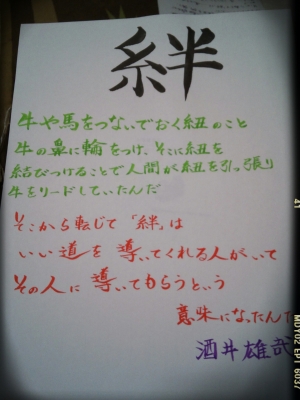 絆
牛や馬をつないでおく紐のこと
牛の鼻に輪をつけ、そこに紐を
結びつけることで人間が紐を引っ張り
牛をリードしていたんだ
そこから転じて「絆」は
いい道を導いてくれる人がいて
その人に導いてもらうという
意味になったんだ
酒井雄哉
MDY02 EPT 603/